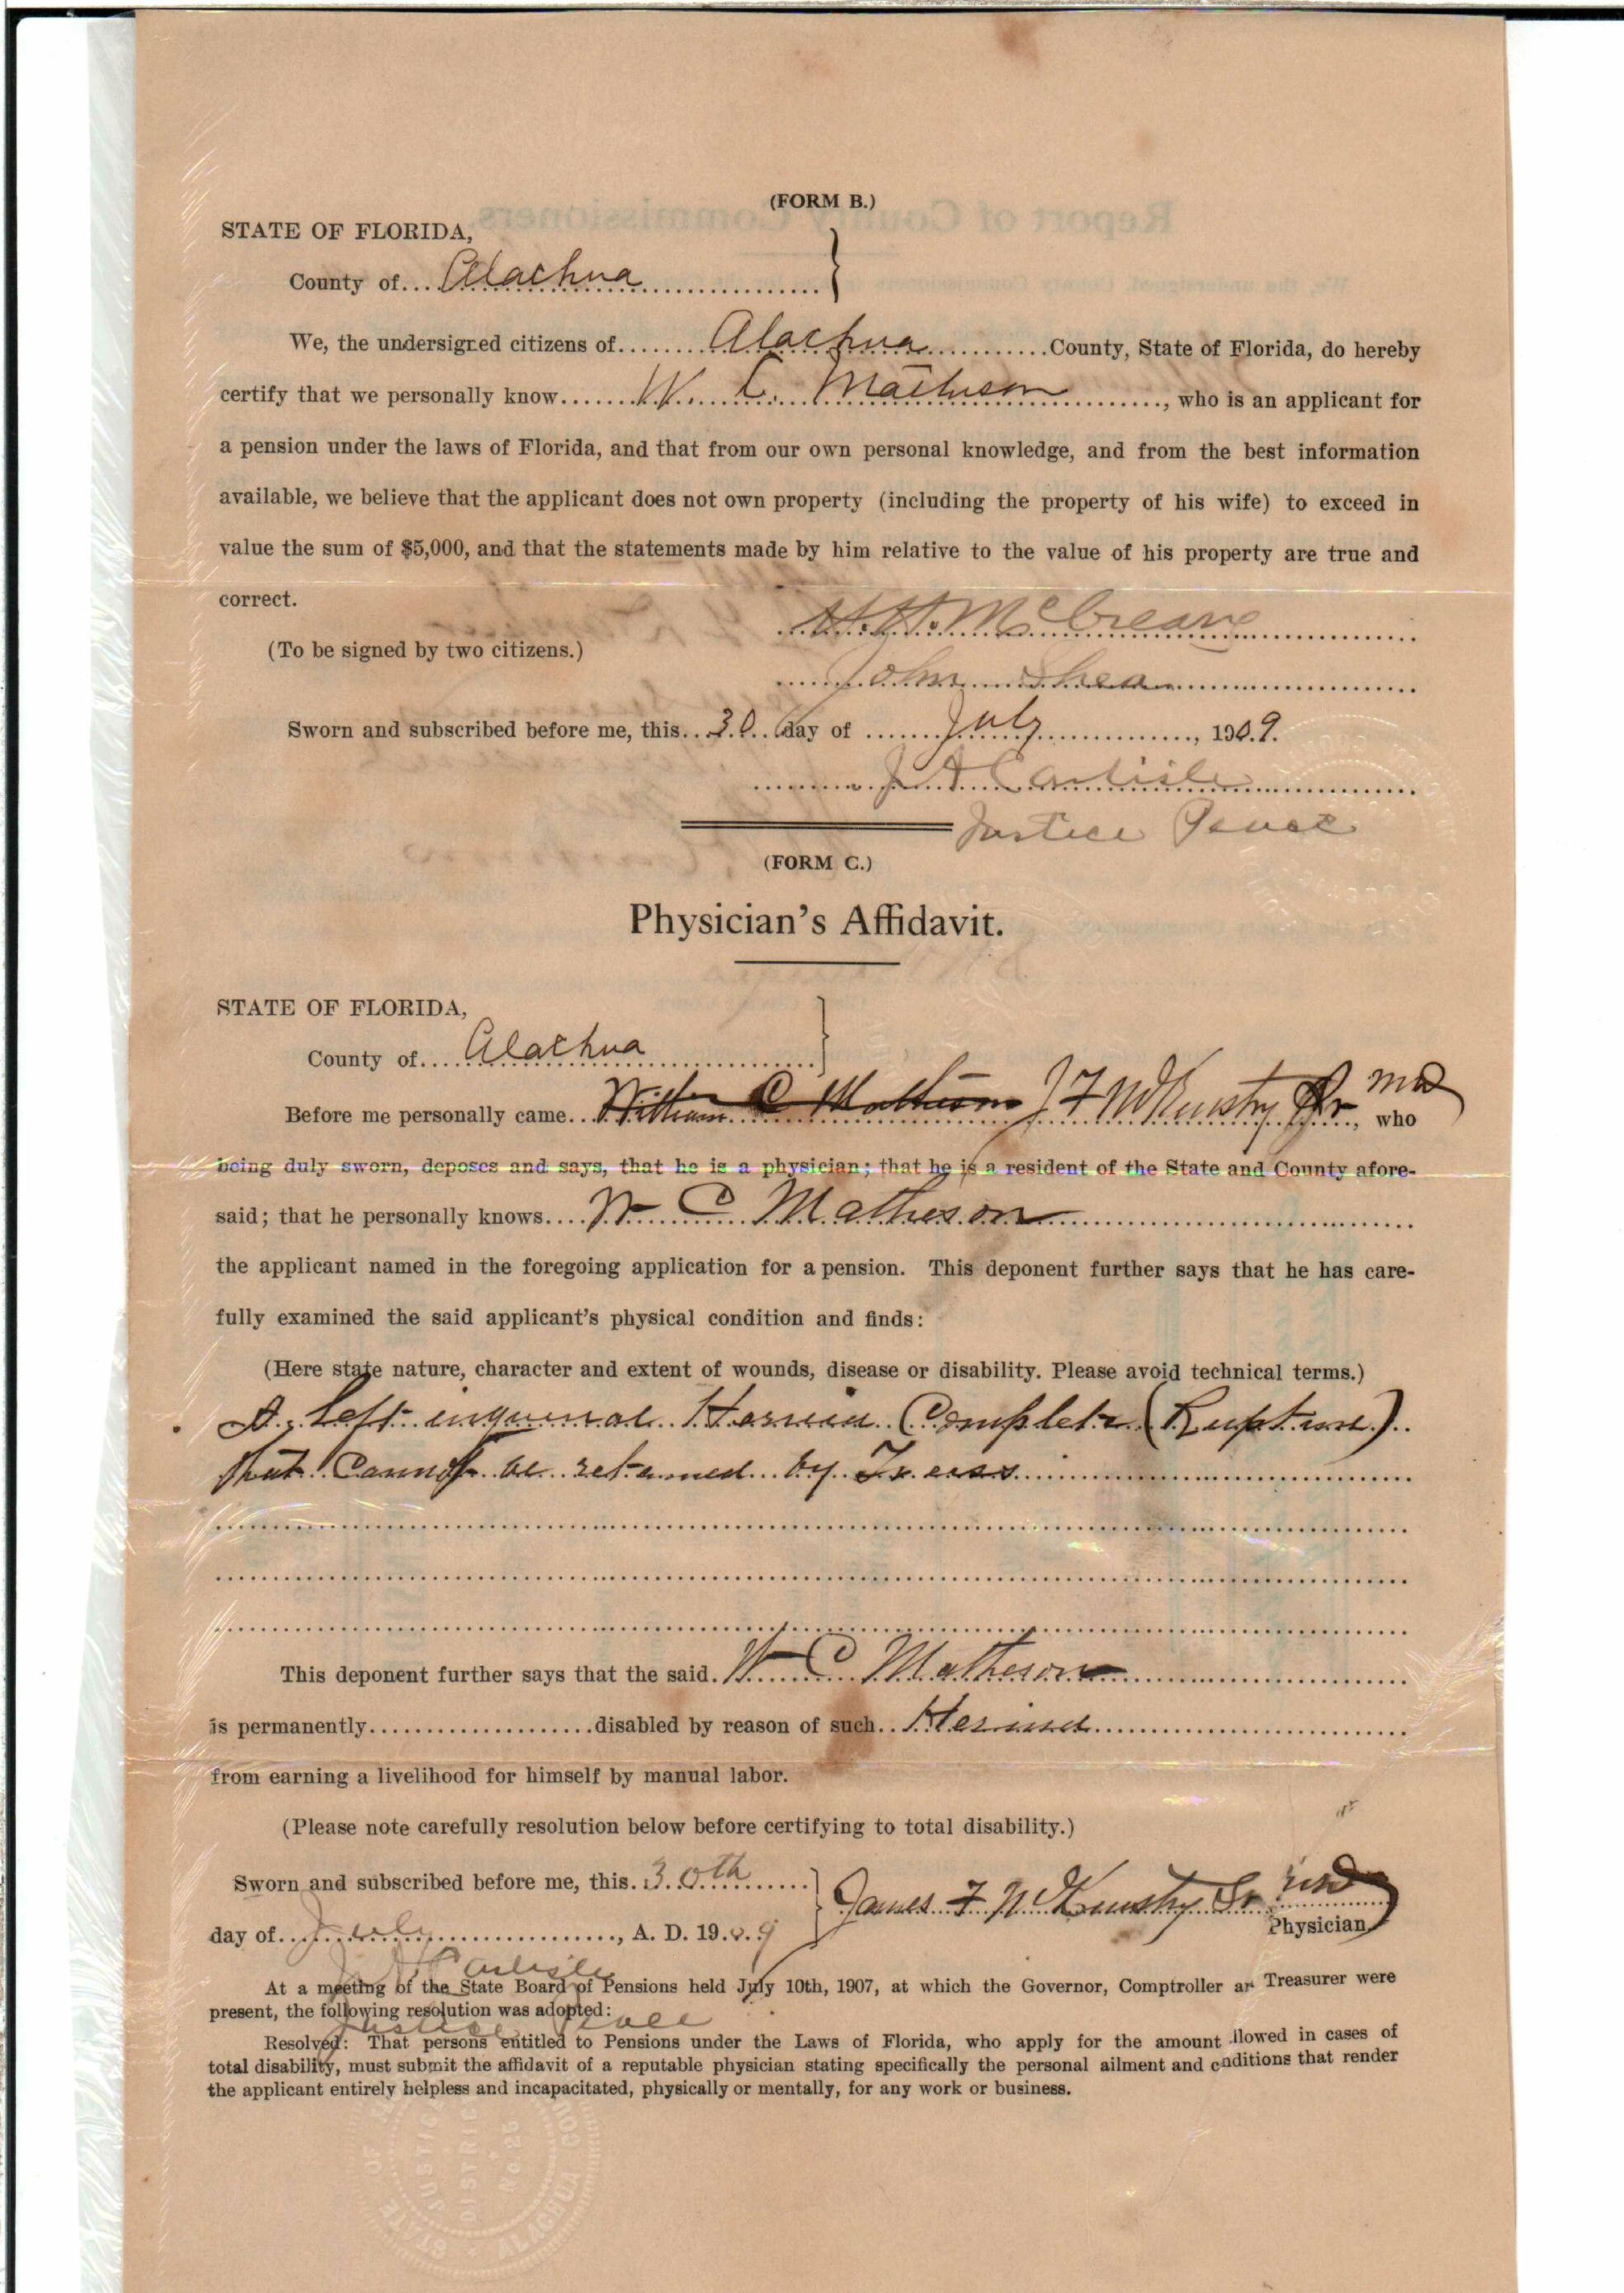 (FORM B.)
STATE OF FLORIDA,
County of Alachua
We, the undersigned citizens of Alachua County, State of Florida, do hereby
certify that we personally know W. C. Matheson, who is an applicant for
a pension under the laws of Florida, and that from our own personal knowledge, and from the best information
available, we believe that the applicant does not own property (including the property of his wife) to exceed in
value the sum of $5,000, and that the statements made by him relative to the value of his property are true and
correct.
H. H. McCreary
(To be signed by two citizens.)
John Shea
Sworn and subscribed before me, this 30 day of July, 1909.
J A Carlisle
Justice Peace
(FORM C.)
Physician's Affidavit.
STATE OF FLORIDA,
County of Alachua
Before me personally came William C Matheson J F McKinstry Sr MD, who
being duly sworn, deposes and says, that he is a physician; that he is a resident of the State and County afore-
said; that he personally knows W C Matheson
the applicant named in the foregoing application for a pension. This deponent further says that he has care-
fully examined the said applicant's physical condition and finds:
(Here state nature, character and extent of wounds, disease or disability. Please avoid technical terms.)
A left inguinal Hernia Complete (Rupture)
that cannot be retained by Truss
This deponent further says that the said W C Matheson
is permanently disabled by reason of such Hernia
from earning a livelihood for himself by manual labor.
(Please note carefully resolution below before certifying to total disability.)
Sworn and subscribed before me, this 30th
James F McKinstry Sr MD
Physician
day of July, A. D. 1909
J A Carlisle
Justice Peace
At a meeting of the State Board of Pensions held July 10th, 1907, at which the Governor, Comptroller an Treasurer were
present, the following resolution was adopted:
Resolved: That persons entitled to Pensions under the Laws of Florida, who apply for the amount llowed in cases of
total disability, must submit the affidavit of a reputable physician stating specifically the personal ailment and cnditions that render
the applicant entirely helpless and incapacitated, physically or mentally, for any work or business.
JUSTICE
DISTRICT
No. 26
STATE OF
ALACHUA COU